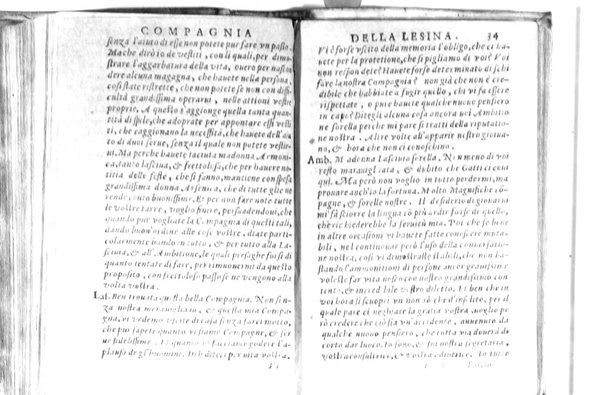 COMPAGNIA
senza l'aiuto di esse non potete pur fare vn passo.
Ma che dirò io de vestiti, con li quali, per dimo
strare l'aggarbatura della vita, ouero per nascon
dere alcuna magagna, che hauete nella persona,
cosi state ristrette, che non potete se non con diffi
cultà grandissima operarui, nelle attioni vostre
proprie. A questo s'aggionge quella tanta quan
tità di spile, che adoprate per appontare essi vesti
ti, che caggionano la necessità, che hauete dell'aiu
to di due serue, senza il quale non potete vestir
ui. Ma perche hauete taciuta madonna Armoni
ca, tanto lasciua, & frettolosa, che per hauere no
titia delle feste, che si fanno, mantiene con spesa
grandissima donna Arsenica, che di tutte gli ne
rende conto buonissimo. Et per non fare note tutte
le vostre tare, voglio finire, persuadendoui, che
quando pur vogliate la Compagnia di questi tali,
dando buon'ordine alle cose vostre, diate parti-
colarmente bando in tutto, & per tutto alla La-
sciuia, & all'Ambitione, le quali per saghe forsi di
quanto tentate di fare, per rimuouermi da questo
proposito, con frettoloso passo se ne vengono alla
volta vostra.
Las. Ben trouata questa bella Compagnia. Non sen-
za nostra merauiglia, & questa mia Compa-
gna, vi vedemo vscite di casa senza farci motto,
che pur sapete quanto vi siamo Compagne, & ser
ue fidelissime. Et quanto vi facciamo godere l'ap
plauso de gl'huomini. In li dieci per vita vostra.
DELLA LESINA. 34
Vi è forse vscito della memoria l'obligo, che ci ha
uete per la protettione, che si pigliamo di voi? Voi
non respondete? Hauete forse determinato di schi
fare la nostra Compagnia? non già che non è cre
dibile che habbiate a fugir quello, chi vi fa essere
rispettate, o pure hauete qualche nuouo pensiero
in capo? Ditegli alcuna cosa ancora voi Ambitio
ne sorella perche mi pare si tratti della riputatio-
ne nostra. Altre volte all'apparir nostro gioiua-
no, & hora che non ci conoschino.
Amb. Madonna Lasciuia sorella. No meno di voi
resto marauigliata, & dubito che Gatti ci coui
qui. Ma però non voglio in tutto perdermi, ma
prouare anch'io la fortuna. Molto Magnifiche cō-
pagne, & sorelle nostre. Il desiderio di gionarui
mi fa sciorre la lingua cō più ardir forse di quello,
che richiederebbe la seruitù mia. Poi che se bene
in altre occasioni vi hauete fatte conoscere muta-
bili, nel continouar però l'uso della conuersatio-
ne nostra, cosi vi dimostraste stabili, che non ba-
stando l'ammonitioni di persone anco graui, non
voleste far vita nesco con nostro grandissimo con
tento, & incredibile vostro diletto. Et ben che in
voi hora si scuopri vn non sò che d'insolito, per il
quale pare ci neghiate la gratia vostra, voglio pe
rò credere che ciò sia vn'accidente, auuenuto da
qualche nuouo pensiero, che tutta via douerà di
corto dar luoco. Io sono, & fui nostra segretaria,
vostra consultrice, & vostra aditrice. Io tutto